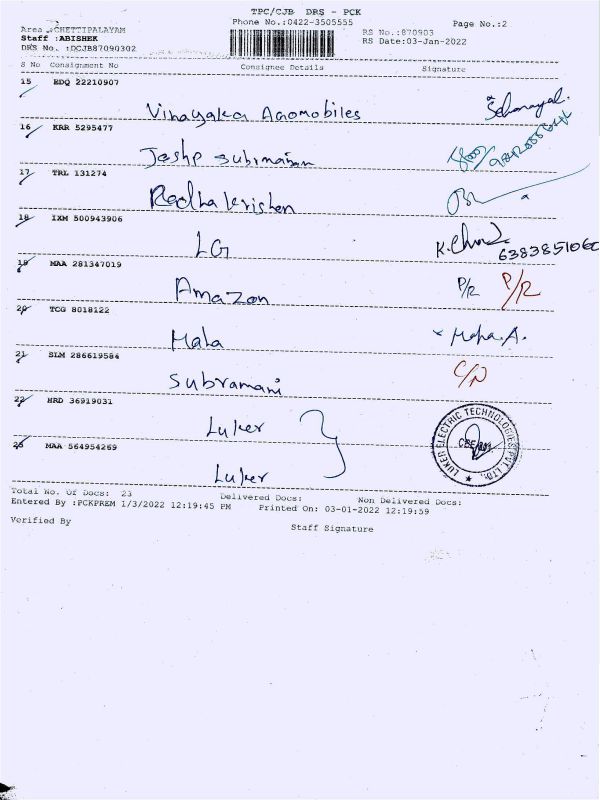 TPC/CJB DRS - PCK
Phone No.:0422-3505555
Page No.:2
Area :CHETTIPALAYAM
Staff :ABISHEK
DRS No. :DCJB87090302
RS No.:870903
RS Date:03-Jan-2022
S No Consignment No Consignee Details Signature
15 EDQ 22210907
Vinayaka Aaomobiles
16 KRR 5295477
17 TRL 131274
Radha krishan
18 IXM 500943906
LG K.
6383851060
19 MAA 281347019
Amazon P/R P/R
20 TCG 8018122
Mala Maha.A.
21 SLM 286619584
Subramani C/N
22 HRD 36919031
Luker
23 MAA 564954269
Luker
LUKER ELECTRIC TECHNOLOGIES PVT. LTD.
Total No. Of Docs: 23 Delivered Docs: Non Delivered Docs:
Entered By :PCKPREM 1/3/2022 12:19:45 PM Printed On: 03-01-2022 12:19:59
Verified By Staff Signature